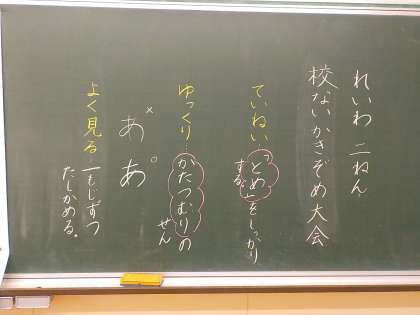 れいわ 二ねん
校ないかきぞめ大会
ていねい
「とめ」をしっかり
する。
ゆっくり…
かたつむりの
せん
×
あ
○
あ
よく見る
一もじずつ
たしかめる。